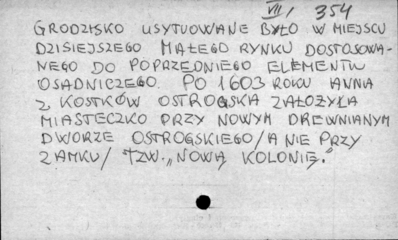 VII/ 354
GRODZISKO USYTUOWANE BYŁO W MIEJSCU
DZISIEJSZEGO MAŁEGO RYNKU DOSTOSOWA-
NEGO DO POPRZEDNIEGO ELEMENTU
OSADNICZEGO. PO 1603 ROKU ANNA
Z KOSTKÓW OSTROGSKA ZAŁOŻYŁA
MIASTECZKO PRZY NOWYM DREWNIANYM
DWORZE OSTROGSKIEGO/A NIE PRZY
ZAMKU/ TZW. „NOWĄ KOLONIĘ."